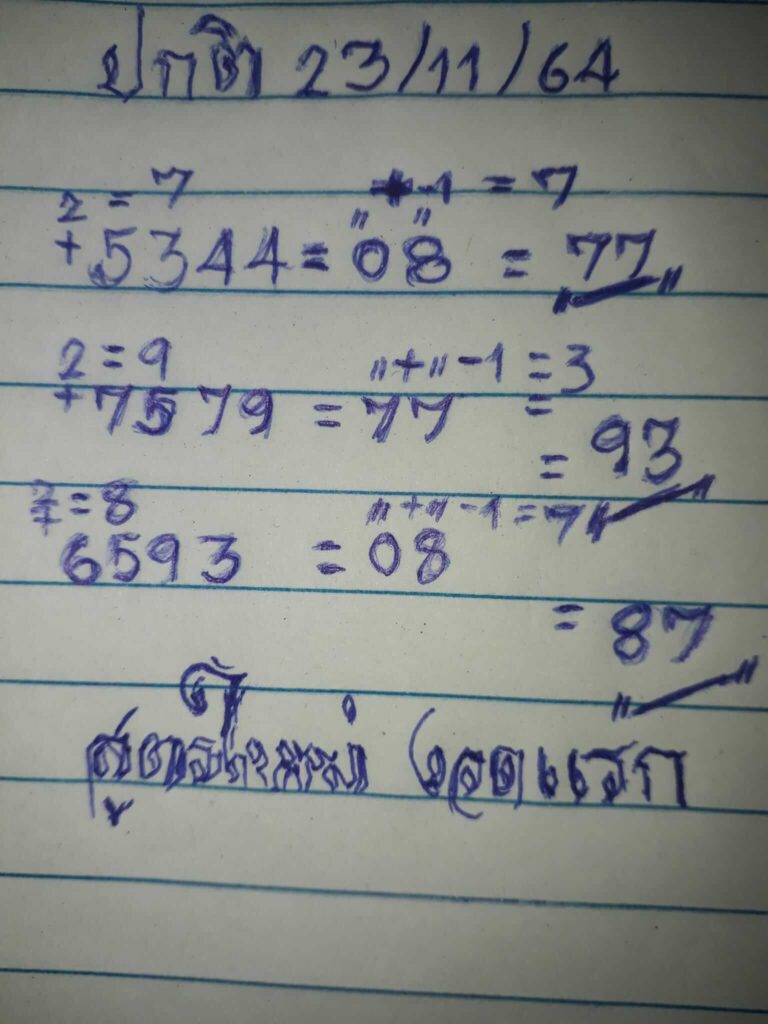 ปกติ 23/11/64
2 = 7 +-1 = 7
+5344 = 08 = 77
2 = 9 "+"-1 = 3
+7579 = 77 =
= 93
2 = 8 "+"-1 = 7
+
6593 = 08
= 87
สูตรใหม่ งวดแรก